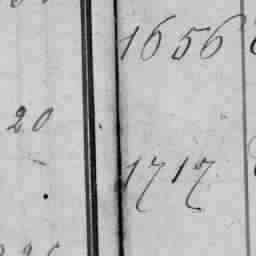 1656
20
1717